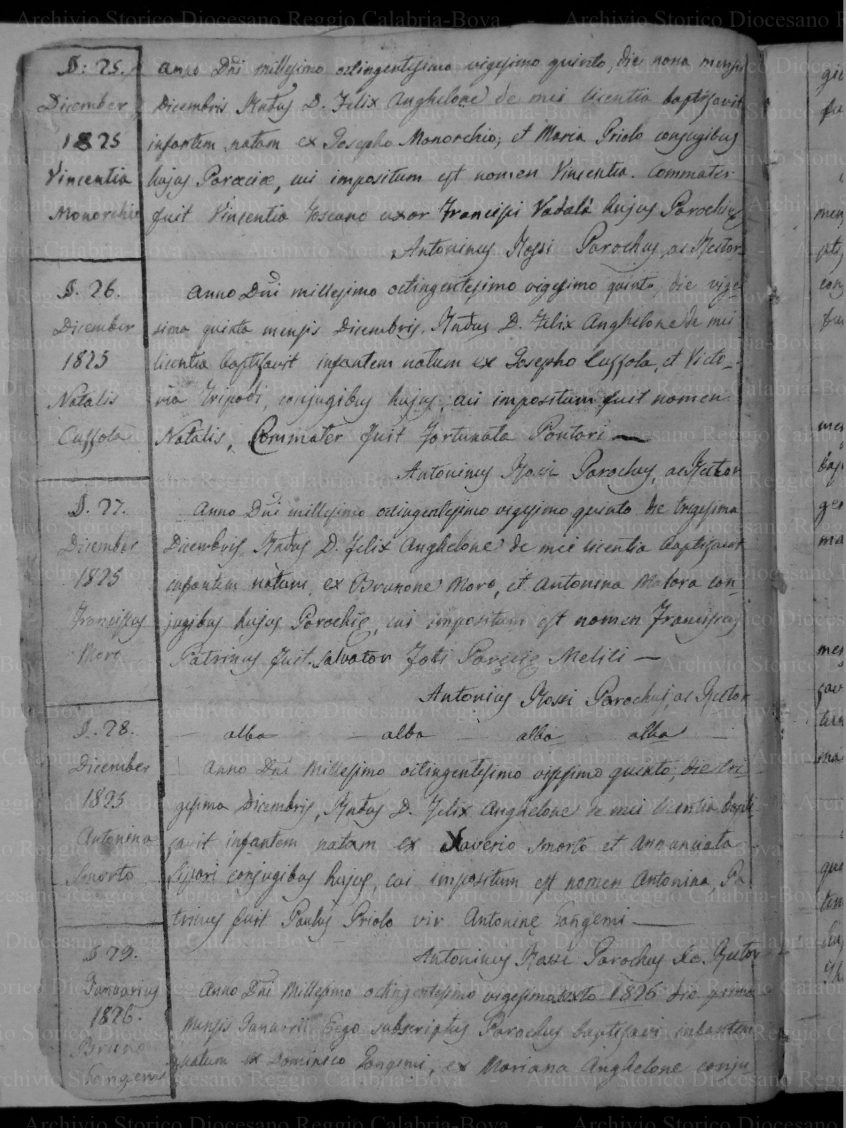 S. 25.
December
1825
Vincentia
Monorchio
Anno Dñi millesimo octingentesimo vigesimo quinto, die nona mensis
Dicembris Rndus D. Felix Anghelone de mei licentia baptisavit
infantem natam ex Josepho Monorchio, et Maria Priolo conjugibus
hujus Paroeciæ, cui impositum est nomen Vincentia. Commater
fuit Vinsentia Toscano uxor Francisci Vadalà hujus Parochiæ
Antoninus Rossi Parochus, ac Rector
S. 26.
Dicember
1825
Natalis
Cuffola
Anno Dñi millesimo octingentesimo vigesimo quinto, die vige-
sima quinta mensis Dicembris, Rndus D. Felix Anghelone de mei
licentia baptisavit infantem natum ex Josepho Cuffola, et Victo-
ria Tripodi, conjugibus hujus, cui impositum fuit nomen
Natalis, Commater fuit Fortunata Pontari
Antoninus Rossi Parochus, ac Rector
S. 27.
Dicember
1825
Franciscus
Moro
Anno Dñi millesimo octingentesimo vigesimo quinto die trigesima
Dicembris, Rndus D. Felix Anghelone de mei licentia baptisavit
infantem natum, ex Brunone Moro, et Antonina Malara con-
jugibus hujus Parochię, cui impositum est nomen Franciscus
Patrinus fuit Salvator Foti Paręcię Meliti
Antonius Rossi Parochus, ac Rector
alba alba alba alba
S. 28.
Dicember
1825
Antonina
Smorto
Anno Dñi Millesimo octingentesimo vigesimo quinto, die tri-
gesima Dicembris, Rndus D. Felix Anghelone de mei licentia bapti-
savit infantem natam ex Xaverio Smorto et Annunciata
conjugibus hujus, cui impositum est nomen Antonina, Pa-
trinus fuit Paulus Priolo vir Antonine Tangemi
Antoninus Rossi Parochus Ac Rector
S. 29.
Januarius
1826.
Bruno
Tangemi
Anno Dñi Millesimo octingentesimo vigesimosexto 1826 die prima
Mensis Januarii Ego subscriptus Parochus baptisavi infantem
natum ex Dominico Tangemi, ex Mariana Anghelone conju